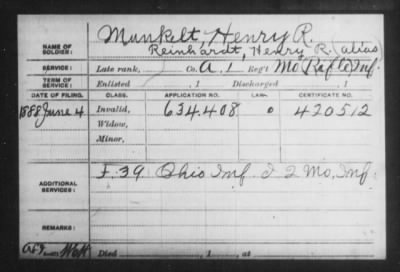 Munkelt, Henry R.
NAME OF SOLDIER: Reinhardt, Henry R. (alias)
SERVICE: Late rank, Co. A, 1 Reg't Mo Refle Inf.
TERM OF SERVICE: Enlisted , 1 Discharged , 1
DATE OF FILING. CLASS. APPLICATION NO. LAW. CERTIFICATE NO.
1888 June 4 Invalid, 634.408 420512
Widow,
Minor,
ADDITIONAL SERVICES: F. 39 Ohio Inf. I 2 Mo, Inf.
REMARKS:
Died , 1 , at